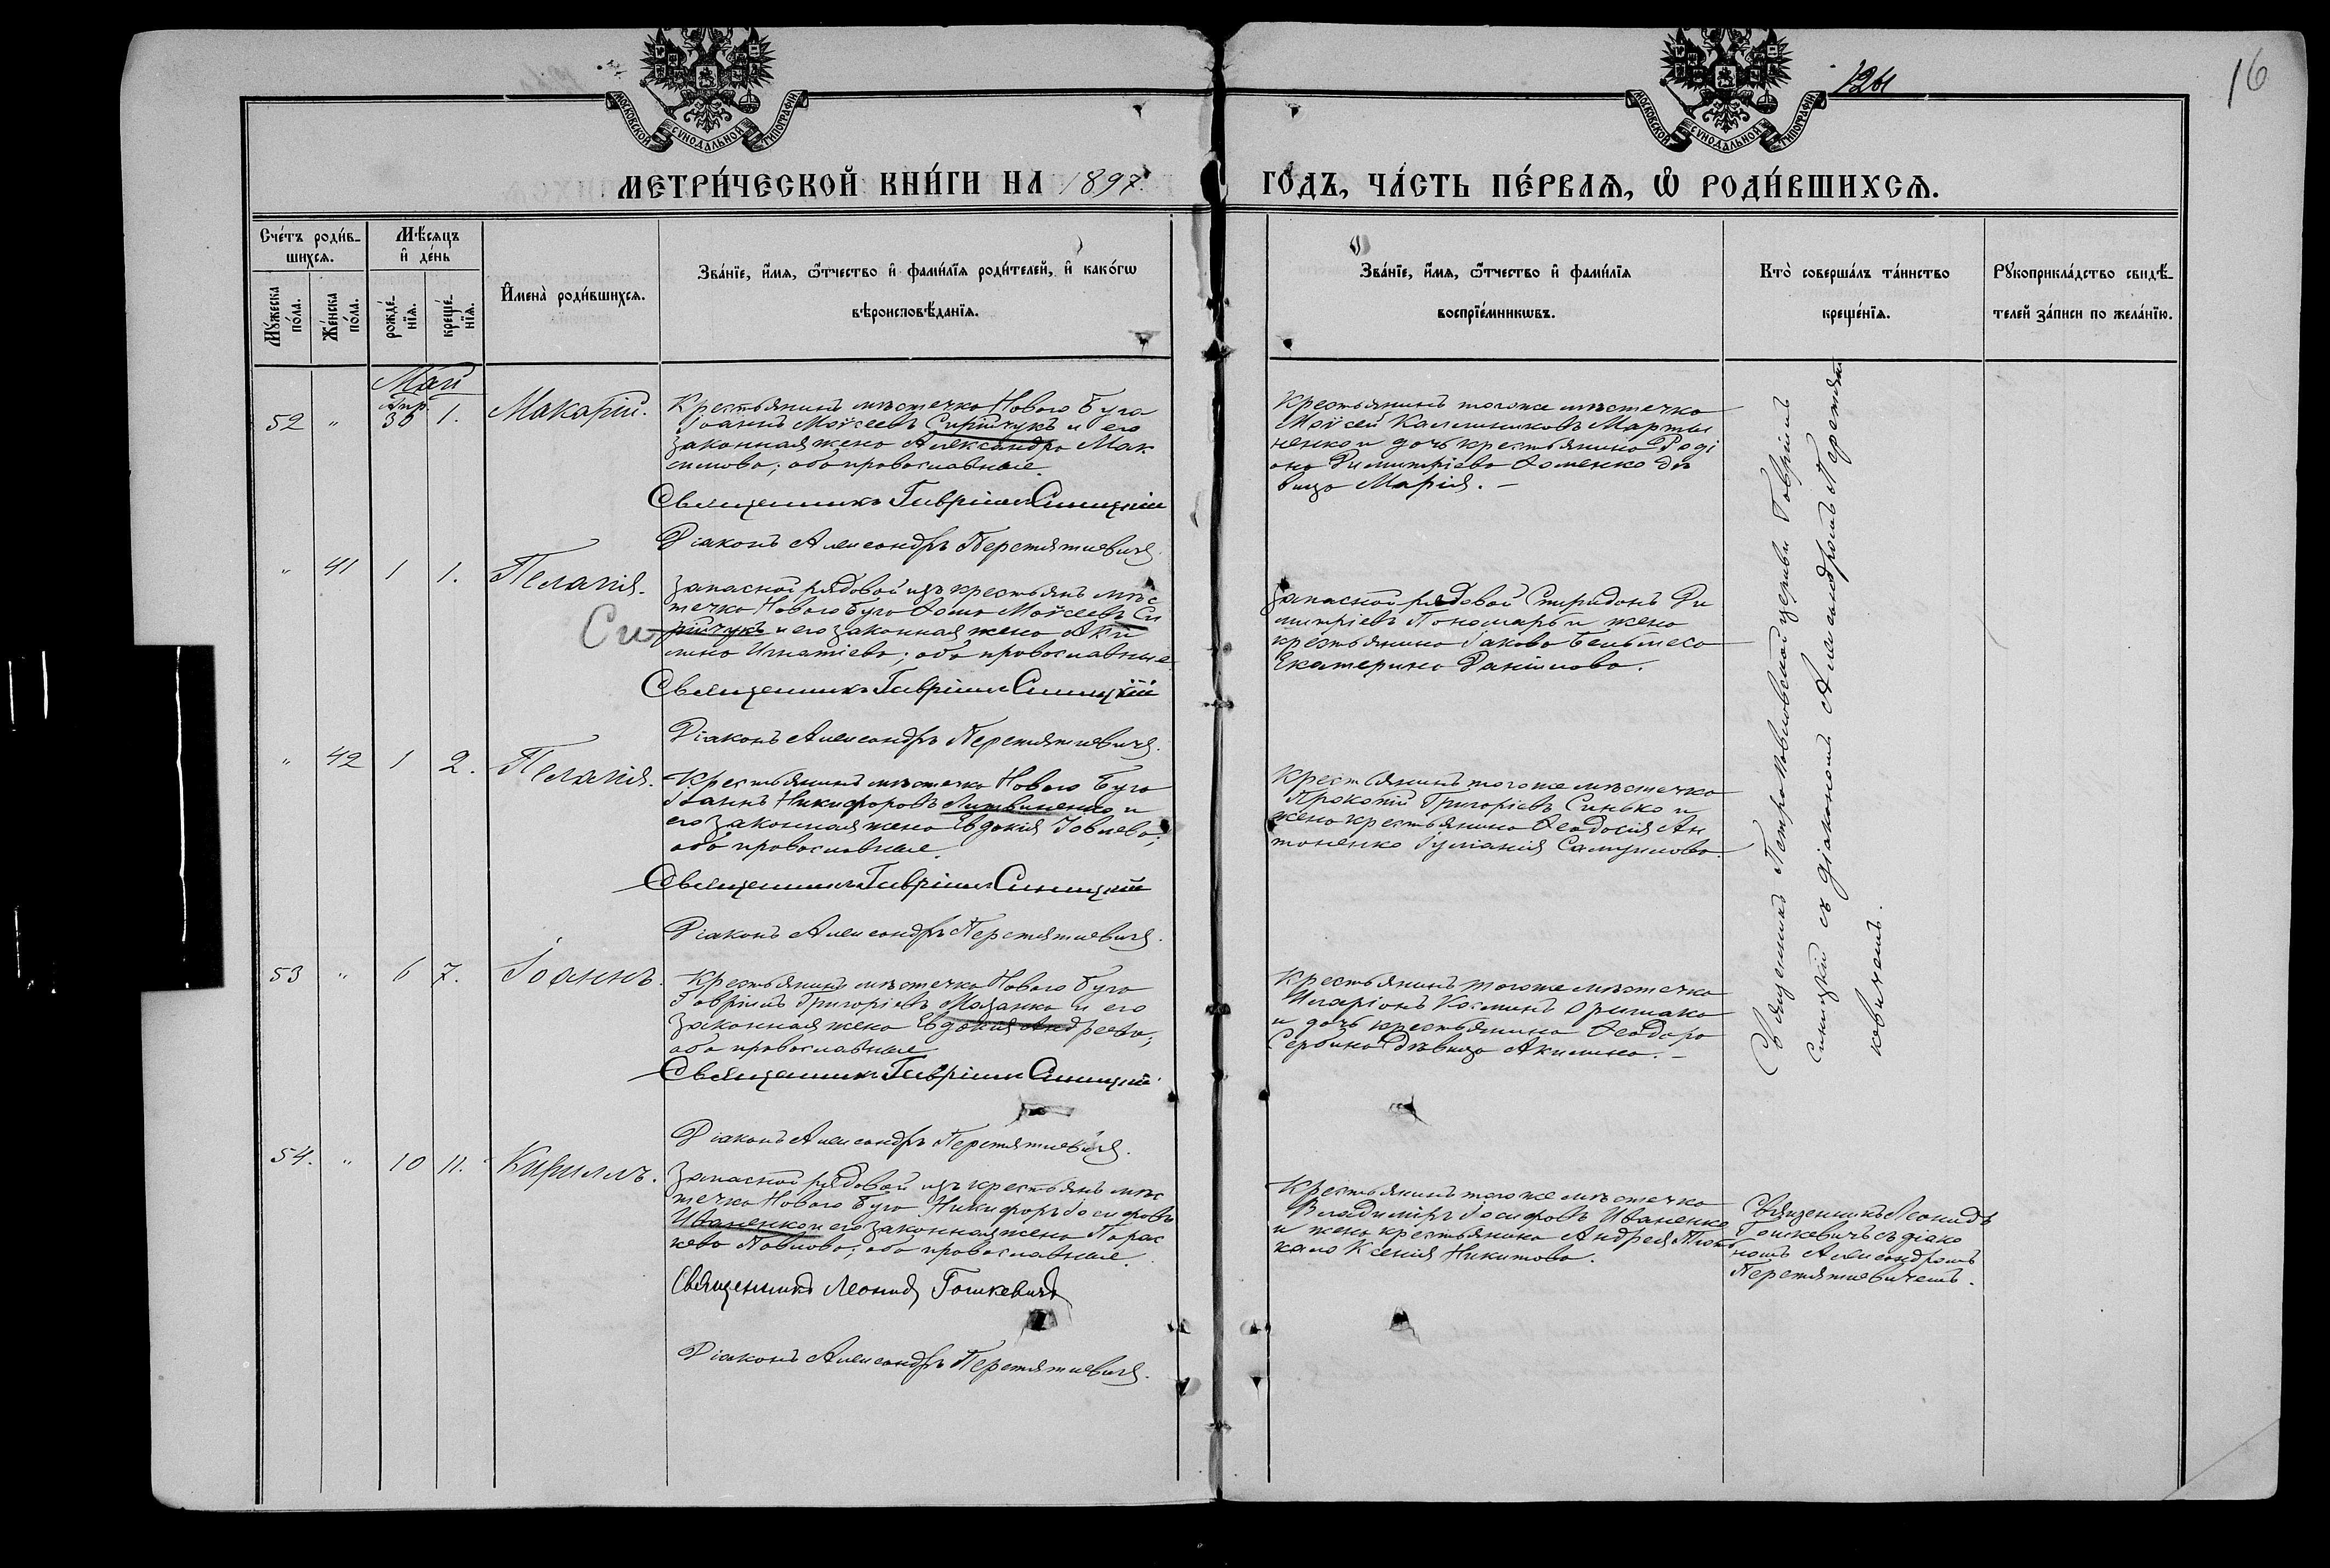 16
124
МОСКОВСКОЙ СѴНОДАЛЬНОЙ ТИПОГРАФІИ
МОСКОВСКОЙ СѴНОДАЛЬНОЙ ТИПОГРАФІИ
МЕТРИ́ЧЕСКОЙ КНИ́ГИ НА 1897.
ГО́ДЪ, ЧА́СТЬ ПЕ́РВАѦ, Ѽ РОДИ́ВШИХСѦ.
Сче́тъ роди́в-
шихсѧ.
Мꙋ́жеска
по́ла.
Же́нска
по́ла.
Мѣ́сѧцъ
и҆ де́нь
рожде́-
нїѧ.
креще́-
нїѧ.
И҆мена̀ роди́вшихсѧ.
Зва́нїе, и҆́мѧ, ѻ҆́тчество и҆ фами́лїѧ роди́телей, и҆ како́гѡ
вѣроисповѣ́данїѧ.
Зва́нїе, и҆́мѧ, ѻ҆́тчество и҆ фами́лїѧ
воспрїе́мникѡвъ.
Кто̀ соверша́лъ та́инство
креще́нїѧ.
Рꙋкоприкла́дство свидѣ́-
телей за́писи по жела́нїю.
Май
52 " Апр. 30 1. Макарій.
Крестьянинъ мѣстечка Новаго Буга
Іоаннъ Моѵсеевъ Сирійчукъ и его
законная жена Александра Мак
симова; оба православные.
Священникъ Гавріилъ Синицкій
Діаконъ Александръ Перетятковичъ.
Крестьянинъ тогоже мѣстечка
Моѵсей Каллиниковъ Марты
ненко и дочь крестьянина Роді
она Димитріева Фоменко дѣ
вица Марія. —
" 41 1 1. Пелагія.
Запасной рядовой изъ крестьянъ мѣс
течка Новаго Буга Фома Моѵсеевъ Си
рійчукъ и его законная жена Аки
лина Игнатіева; оба православные.
Си
Священникъ Гавріилъ Синицкій
Діаконъ Александръ Перетятковичъ.
Запасной рядовой Спиридонъ Ди
митріевъ Пономарь и жена
крестьянина Іакова Бельмеса
Екатерина Даніилова.
" 42 1 2. Пелагія.
Крестьянинъ мѣстечка Новаго Буга
Іоаннъ Никифоровъ Литвиненко и
его законная жена Евдокія Іовлева;
оба православные.
Священникъ Гавріилъ Синицкій
Діаконъ Александръ Перетятковичъ.
Крестьянинъ тогоже мѣстечка
Прокопій Григоріевъ Синько и
жена крестьянина Феодосія Ан
тоненко Іуліанія Самуилова.
53 " 6 7. Іоаннъ.
Крестьянинъ мѣстечка Новаго Буга
Гавріилъ Григоріевъ Мазанко и его
законная жена Евдокія Андреева;
оба православные
Священникъ Гавріилъ Синицкій
Діаконъ Александръ Перетятковичъ.
Крестьянинъ тогоже мѣстечка
Иларіонъ Косминъ
и дочь крестьянина Феодора
Сербина дѣвица Акилина. —
Священникъ Петропавловской церкви Гавріилъ
Синицкій съ діакономъ Александромъ Перетят
ковичемъ.
54. " 10 11. Кириллъ.
Запасной рядовой изъ крестьянъ мѣс
течка Новаго Буга Никифоръ Іосифовъ
Иваненко и его законная жена Парас
кева Павлова; оба православные.
Священникъ Леонидъ Гошкевичъ
Діаконъ Александръ Перетятковичъ.
Крестьянинъ тогоже мѣстечка
Владиміръ Іосифовъ Иваненко
и жена крестьянина Андрея
Ксенія Никитова.
Священникъ Леонидъ
Гошкевичъ съ діако
номъ Александромъ
Перетятковичемъ.